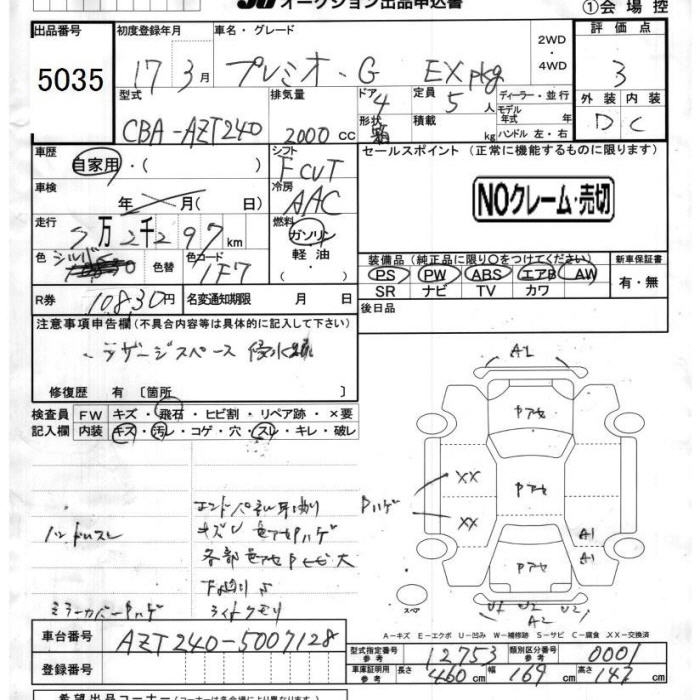 オークション出品申込書
①会場控
出品番号
5035
初度登録年月
17 3月
車名・グレード
プレミオ・G EXpkg
2WD
・
4WD
評価点
3
型式
CBA-AZT240
排気量
2000 cc
ドア
4
形状
定員
5人
積載
kg
ディーラー・並行
モデル年式 年
ハンドル 左・右
外装 内装
D C
車歴
自家用・( )
シフト
F CVT
セールスポイント (正常に機能するものに限ります)
NOクレーム・売切
車検
年 月( 日)
冷房
AAC
走行
7万2千297km
燃料
ガソリン
軽油
・( )
色 シルバー
色替
色コード
1F7
装備品 (純正品に限り○をつけてください)
PS PW ABS エアB AW
SR ナビ TV カワ
新車保証書
有・無
R券 10830円
名変通知期限 月 日
後日品
注意事項申告欄(不具合内容等は具体的に記入して下さい)
・ラゲージスペース 侵水跡
修復歴 有 〔箇所 〕
検査員 FW キズ・飛石・ヒビ割・リペア跡・×要
記入欄 内装 キズ・汚レ・コゲ・穴・スレ・キレ・破レ
ハンドルスレ
各部
ミラーカバーPハゲ
ライトクモリ
A1
Pアセ
Pハゲ
XX
Pアセ
XX
A1
Pアセ
A1
スペア
U1 U2 U2
A2
A-キズ E-エクボ U-凹み W-補修跡 S-サビ C-腐食 XX-交換済
車台番号 AZT240-5007128
登録番号
型式指定番号 参考 12753 類別区分番号 参考 0001
車庫証明用 参考 長さ 460cm 幅 169cm 高さ 147cm
希望出品コーナー(コーナーは各会場により異なります)